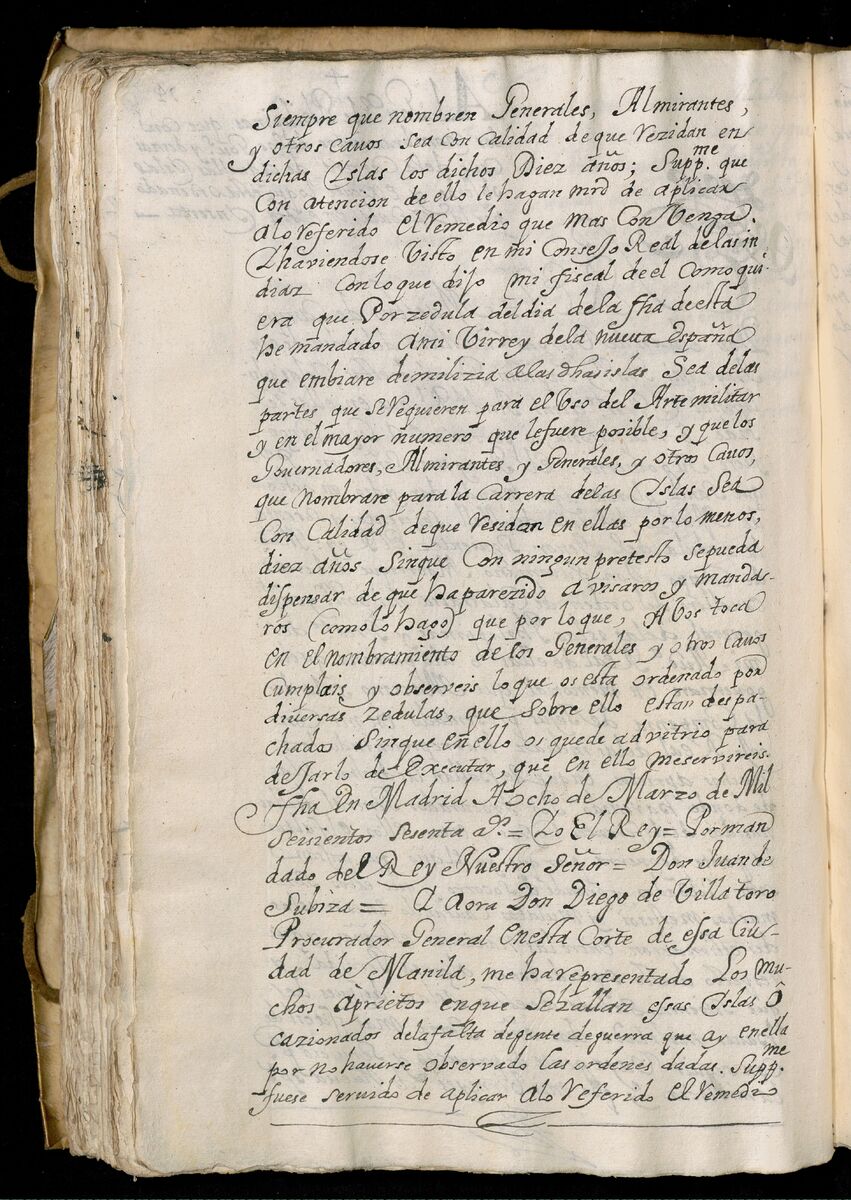 Siempre que nombren Generales, Almirantes,
y otros cavos sea con calidad de que rezidan en
dichas Islas los dichos Diez años; Supp.me que
con atencion de ello le hagan mrd de aplicar
alo referido el remedio que mas conVenga.
Y haviendose Visto en mi Consejo Real de las in
diaz con lo que dijo mi fiscal de el como qui-
era que Por zedula del dia de la fha de esta
he mandado ami Virrey dela nueva españa
que embiare de milizia alas dhas islas Sea delas
partes que se requieren para el Vso del Arte militar
y en el mayor numero que le fuere posible, y que los
Governadores, Almirantes y Generales, y otros Cavos,
que Nombrare para la Carrera delas Islas Sea
Con Calidad de que residan en ellas por lo menos,
diez años sinque con ningun pretesto sepueda
dispensar de que ha parezido avisaros y manda-
ros (como lo hago) que por lo que, A Vos toca
en el nombramiento de los Generales y otros Cavos
Cumplais y observeis lo que os esta ordenado por
diversas zedulas, que sobre ello estan despa-
chados sinque en ello os quede advitrio para
dejarlo de executar, que en ello me servireis.
fha En Madrid A ocho de Marzo de Mil
seisientos sesenta a.s = Yo El Rey = Por man
dado del Rey Nuestro señor = Don Juan de
Subiza = Y aora Don Diego de Villatoro
Procurador General en esta Corte de essa Ciu-
dad de Manila, me ha representado Los mu-
chos aprietos enque se hallan essas Islas ô
cazionados dela falta de gente de guerra que ay en ella
por no haverse observado las ordenes dadas. Supp.me
fuese servido de aplicar alo referido el remedio